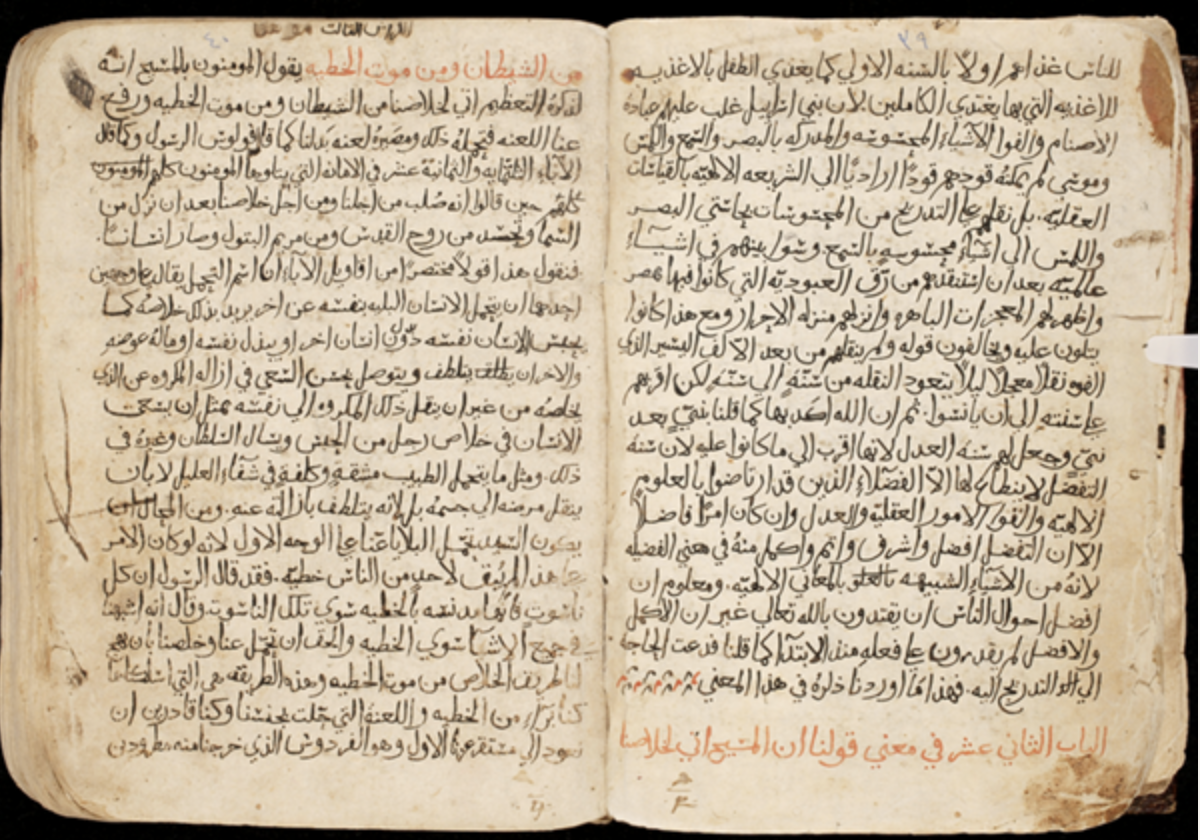 ٣٩
للناس غذاهم اولًا بالسنه الاولي كما يغتدي الطفل بالاغذيه
للاغذيه التي بها يغتدي الكاملين. لان بني اسراييل غلب عليهم عبادة
الاصنام والفوا الاشياء المحسوسه والمدركه بالبصر والسمع واللمس
وموسي لم يمكنه قودهم قودًا اراديًا الي الشريعه الالهيه بالقياسات
العقليه. بل نقلهم علي التدريج من المحسوسات بحاستي البصر
واللمس الي اشياء محسوسه بالسمع وسوا بينهم في اشياء
عالميه بعد ان استنقدهم من رق العبوديه التي كانوا فيها بمصر
واظهر لهم المعجزات الباهره وانزلهم منزله الاحرار ومع هذا كانوا
يتلون عليه ويخالفون قوله ولم ينقلهم من بعد الالف اليسير الذي
الفوه نقلًا معجلًا ليلا يتعود النقله من سنّه الي سنّه لكن اقرهم
علي سنته الي ان يانسوا. ثم ان الله اكد بها كما قلنا بنبيّ بعد
نبيّ وجعل لهم سنه العدل لانها اقرب الي ما كانوا عليه لان سنه
التفضل لا ينطاع لها الا الفضلاء الذين قد ارتاضوا بالعلوم
الالهيه والفوا الامور العقليه والعدل وان كان امرًا فاضلًا
الا ان التفضل افضل واشرف واتم واكمل منه في معني الفضيله
لانه من الاشياء الشبيهه بالمعاني الالهيه. ومعلوم ان
افضل احوال الناس ان يقتدون بالله تعالي غير ان الاكمل
والافضل لم يقدرون علي فعله منذ الابتدا كما قلنا فدعت الحاجه
الي التدريج اليه. فهذا ما اوردنا ذكره في هذا المعني
الباب الثاني عشر في معني قولنا ان المسيح اتي لخلاصنا
٤٠
الكراس الثالث
من الشيطان ومن موت الخطيه يقول المومنون بالمسيح انه
لذكره التعظيم اتي لخلاصنا من الشيطان ومن موت الخطيه ورفع
عنا اللعنه فتحمله ذلك ومصيره لعنه بدلنا كما قال فولوس الرسول وكما قال
الآباء الثلثمايه والثمانية عشر في الامانه التي يتلوها المومنون
كلهم حين قالوا انه صُلب من اجلنا ومن اجل خلاصنا بعد ان نزل من
السما وتجسد من روح القدس ومن مريم البتول وصار انسانًا.
فنقول هذا قولًا مختصرًا من اقاويل الآباء ان اسم التحمل يقال علي وجهين
احدهما ان يتحمل الانسان البليه بنفسه عن اخر يريد بذلك خلاصه كما
يحبس الانسان نفسه دون انسان اخر او يبذل نفسه او ماله عوضه
والاخر ان يتلطف ويتوصل بحسن السعي في ازاله المكروه عن الذي
يخلصه من غير ان ينقل ذلك المكروه الي نفسه بمثل ان يسعي
الانسان في خلاص رجل من الحبس ويسال السلطان وغيره في
ذلك. ومثل ما يتحمل الطبيب مشقه وكلفه في شفاء العليل لا بان
ينقل مرضه الي جسمه بل لانه يتلطف بازالته عنه. ومن المحال ان
يكون السيد تحمل البلايا عنا علي الوجه الاول لانه لو كان الامر
علي هذا لم يُبق لاحد من الناس خطيه. فقد قال الرسول ان كل
الخطيه سوي تلك الناسوت وقال انه اشبهنا
في جميع الاشيا سوي الخطيه والحق ان تحمل عنا وخلصنا بان نهج
لنا طريق الخلاص من موت الخطيه وهذه الطريقه هي التي اسلكناها
كنا برآء من الخطيه واللعنه التي حلت بجنسنا وكنا قادرين ان
نعود الي مستقر عزنا الاول وهو الفردوس الذي خرجنا منه مطرودين